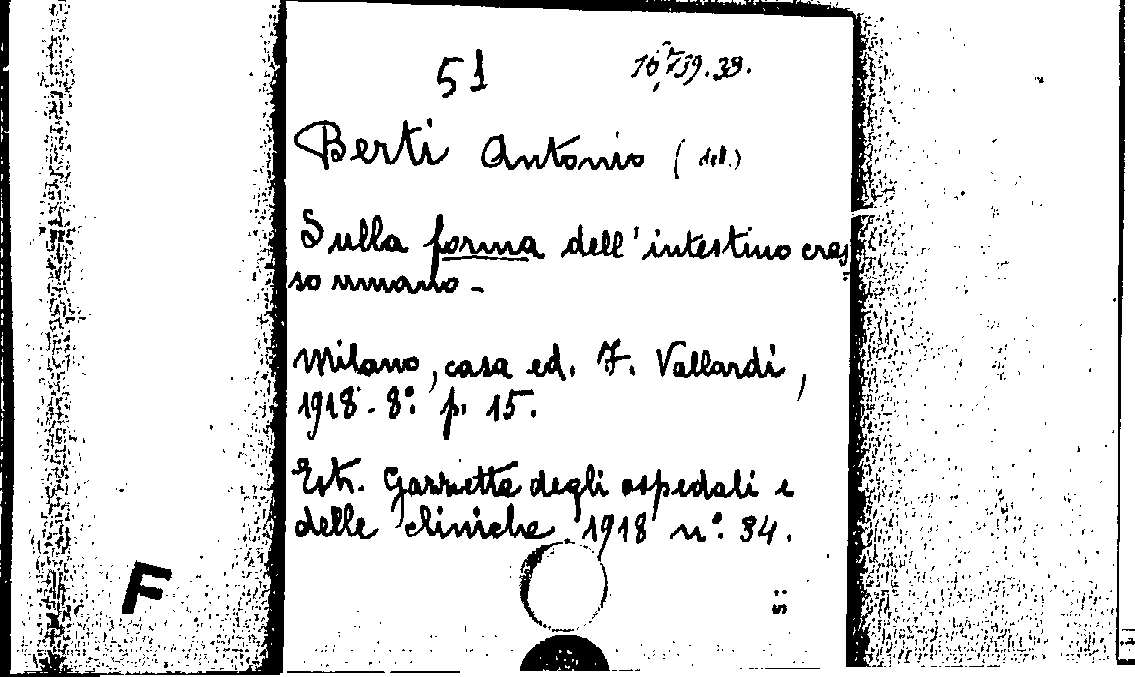 51
Berti Antonio (del.)
Sulla forma dell'intestino cras
so umano -
Milano, casa ed. F. Vallardi,
1918 - 8° p. 15.
Estr. Gazzetta degli ospedali e
delle cliniche 1918 n°. 34.
F